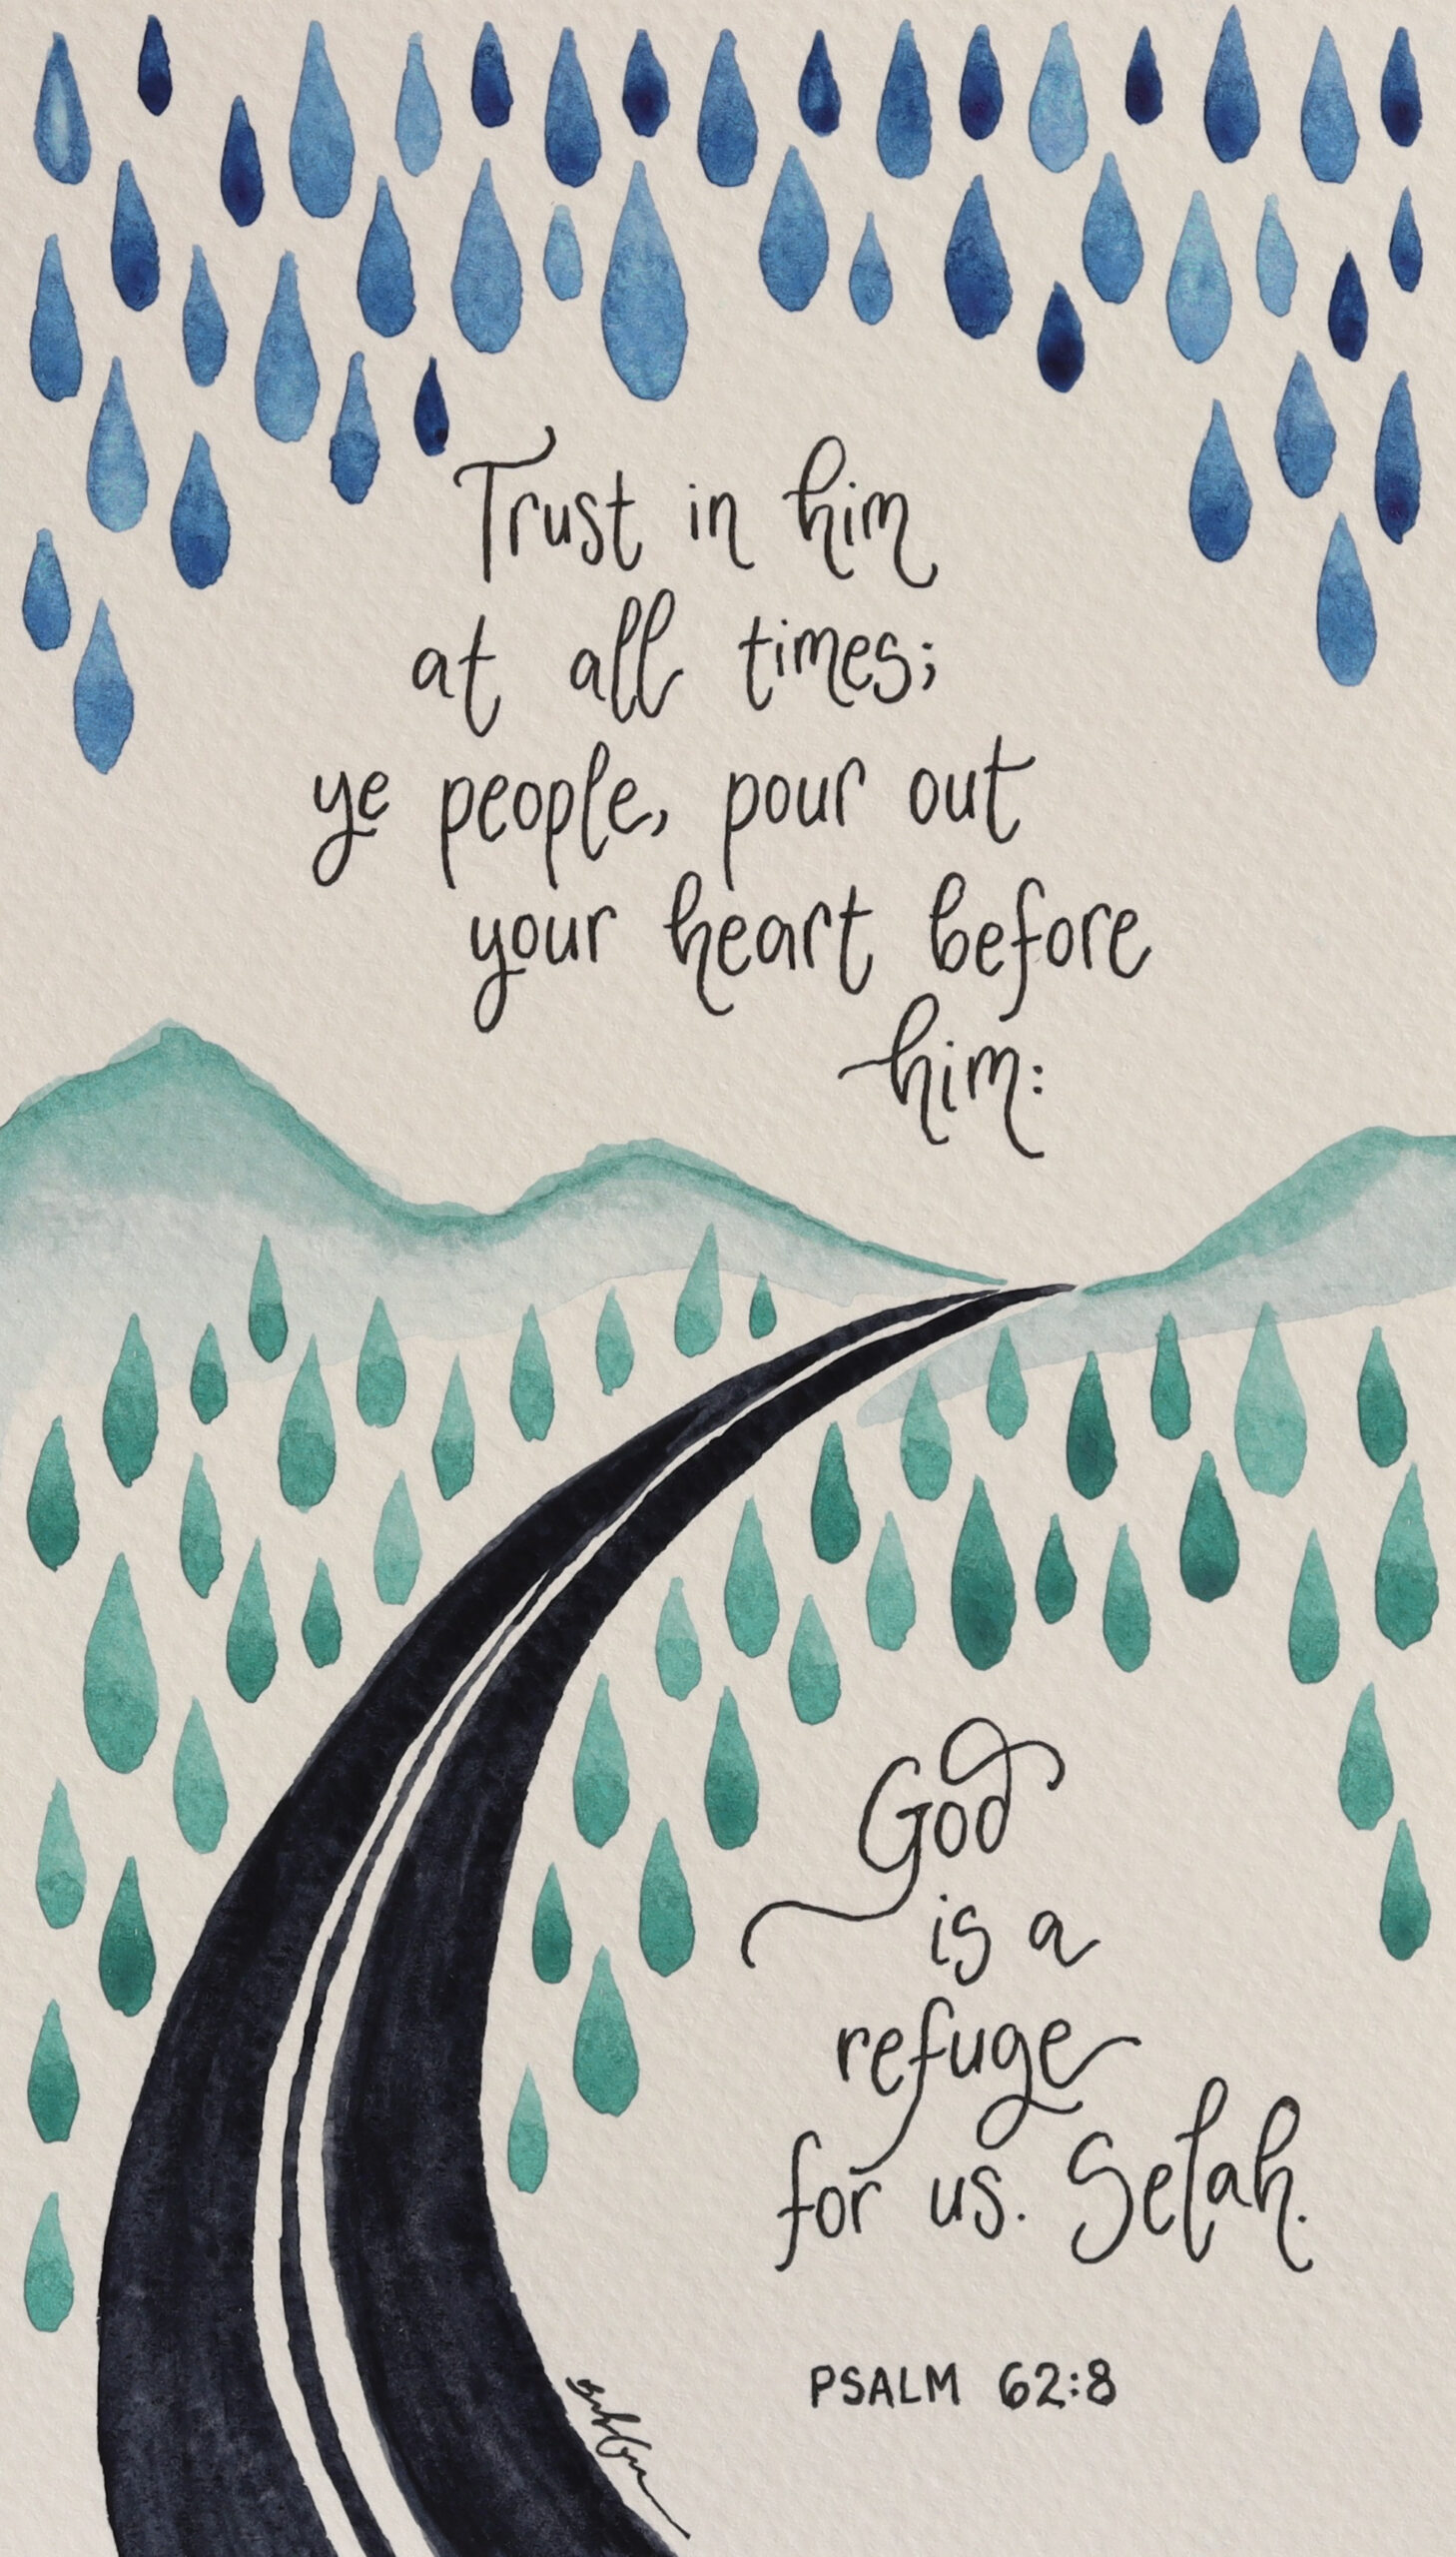 Trust in him
at all times;
ye people, pour out
your heart before
him:
God
is a
refuge
for us. Selah.
PSALM 62:8